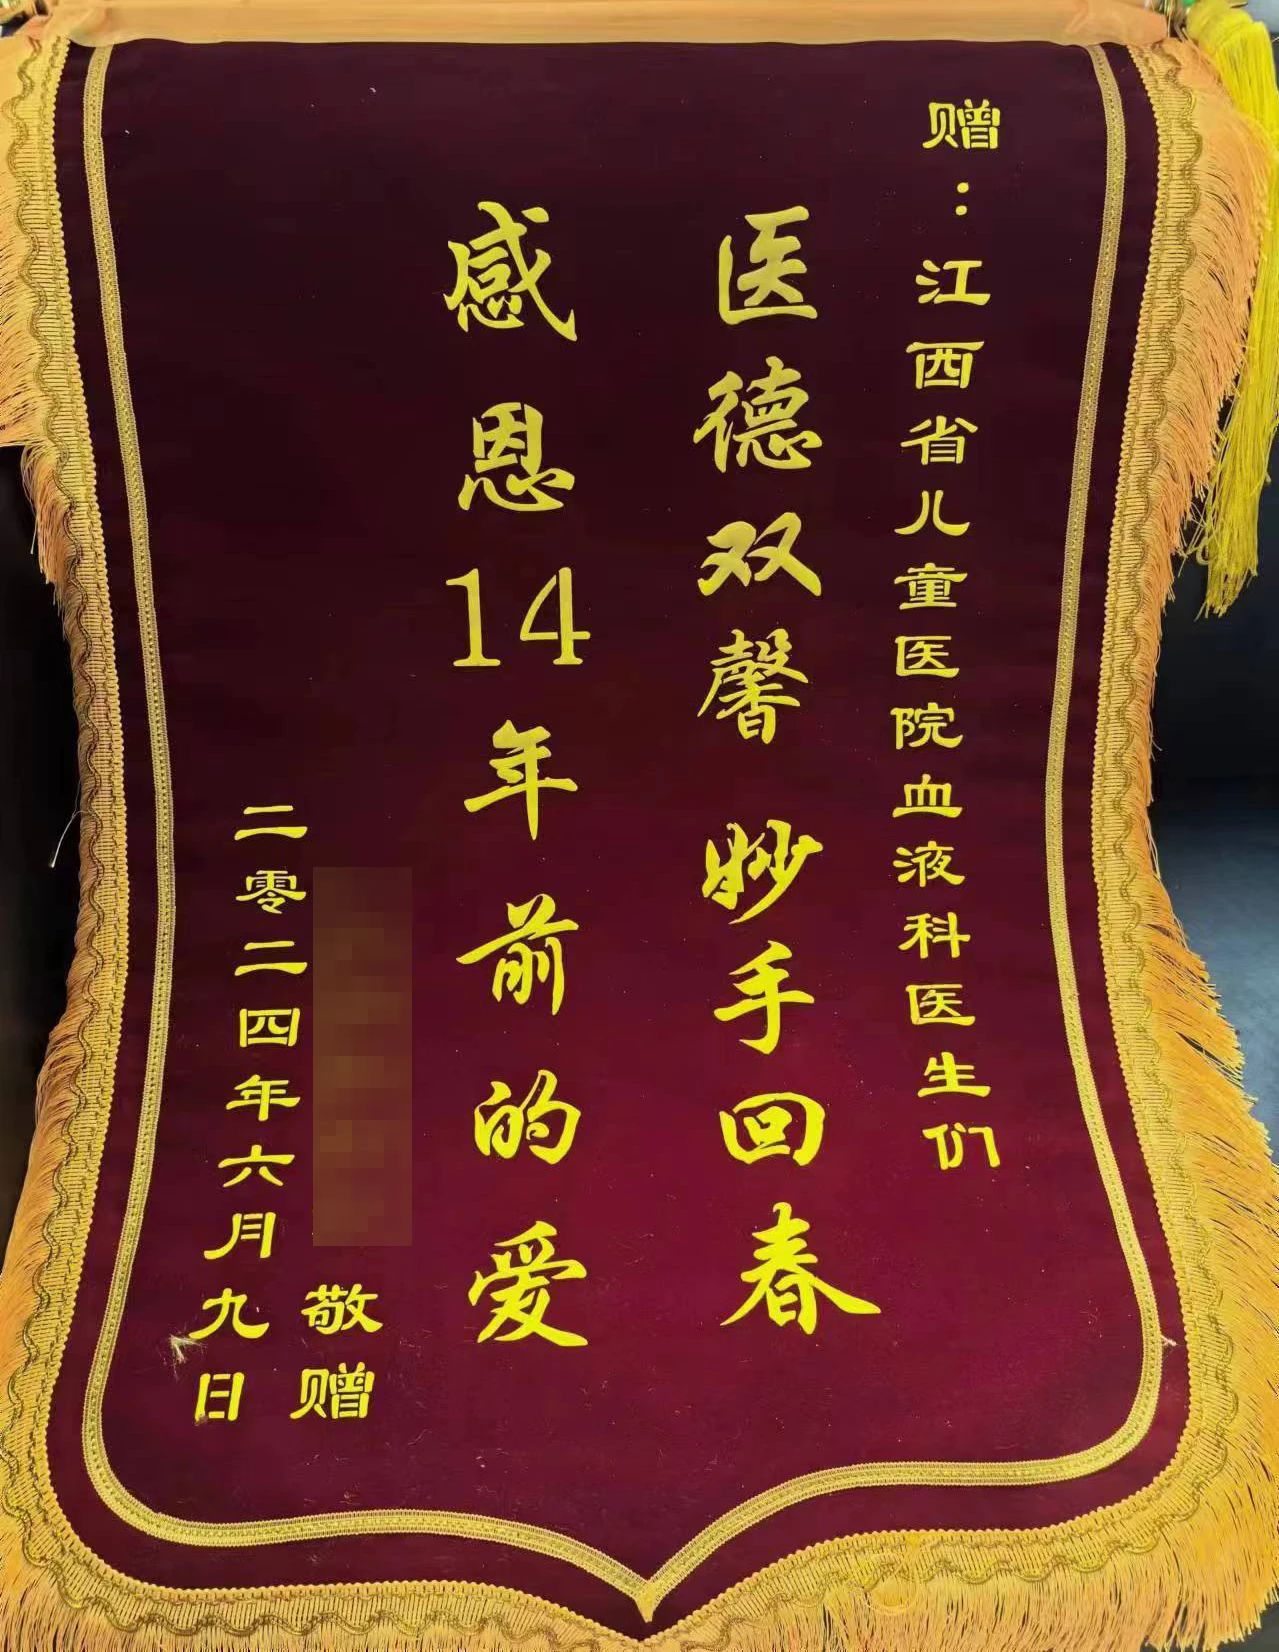 赠：江西省儿童医院血液科医生们
医德双馨 妙手回春
感恩14年前的爱
敬赠
二零二四年六月九日